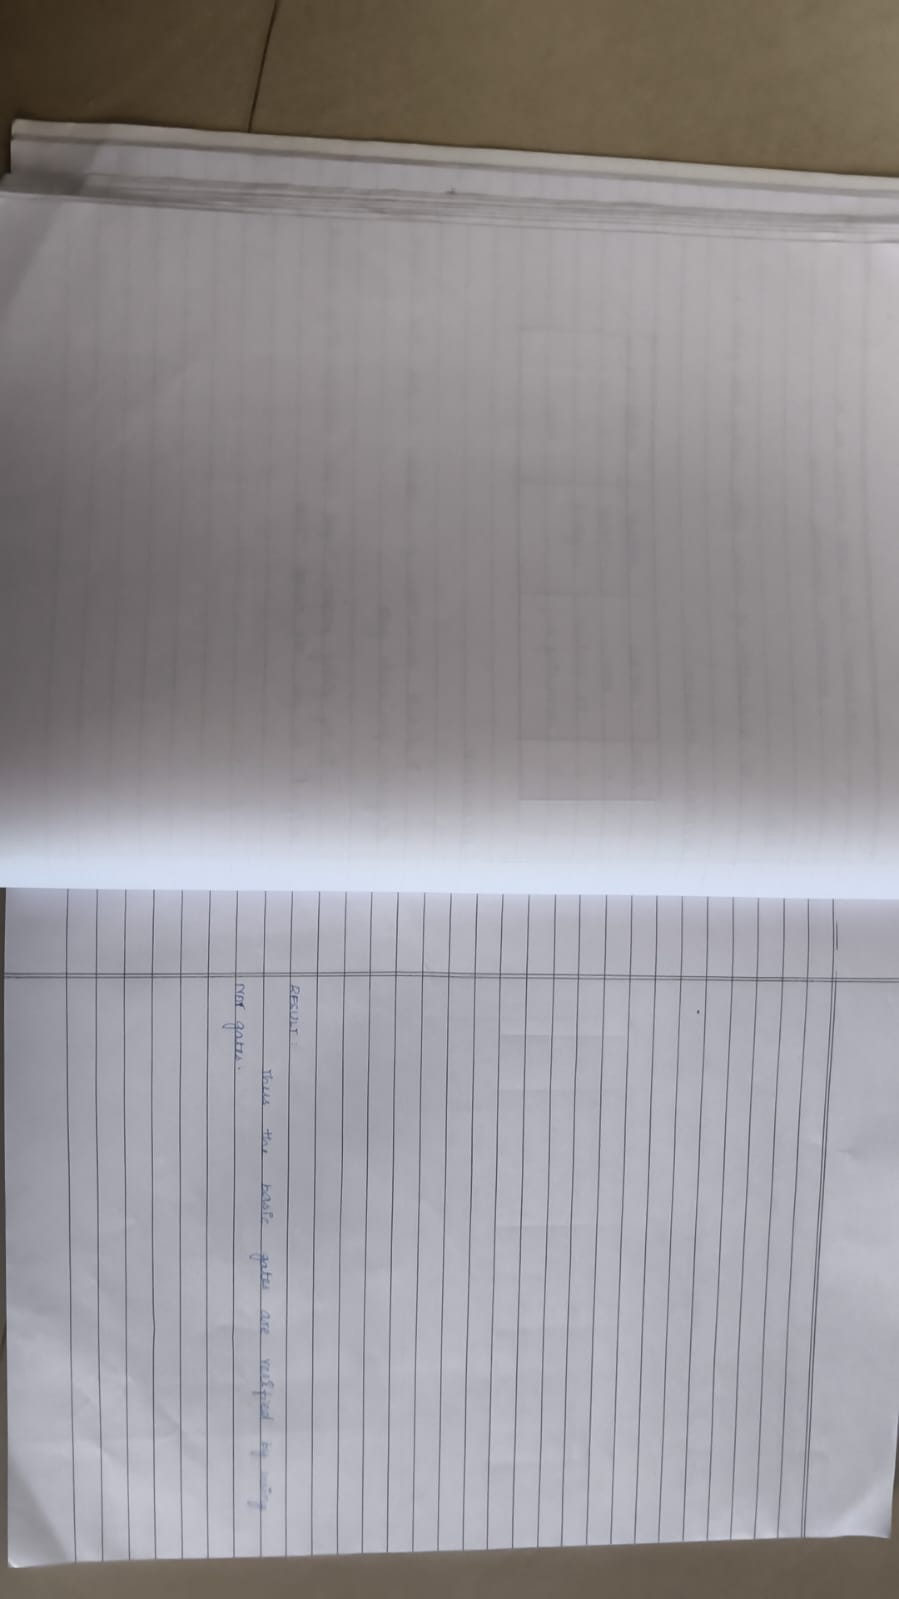 RESULT:
Thus the basic gates are verified by using
gates.